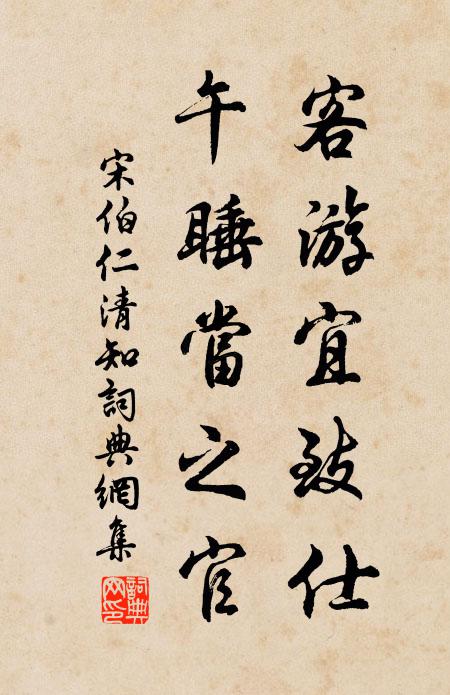 客游宜致仕
午睡當之官
宋伯仁清知詞典網集
詞典網印